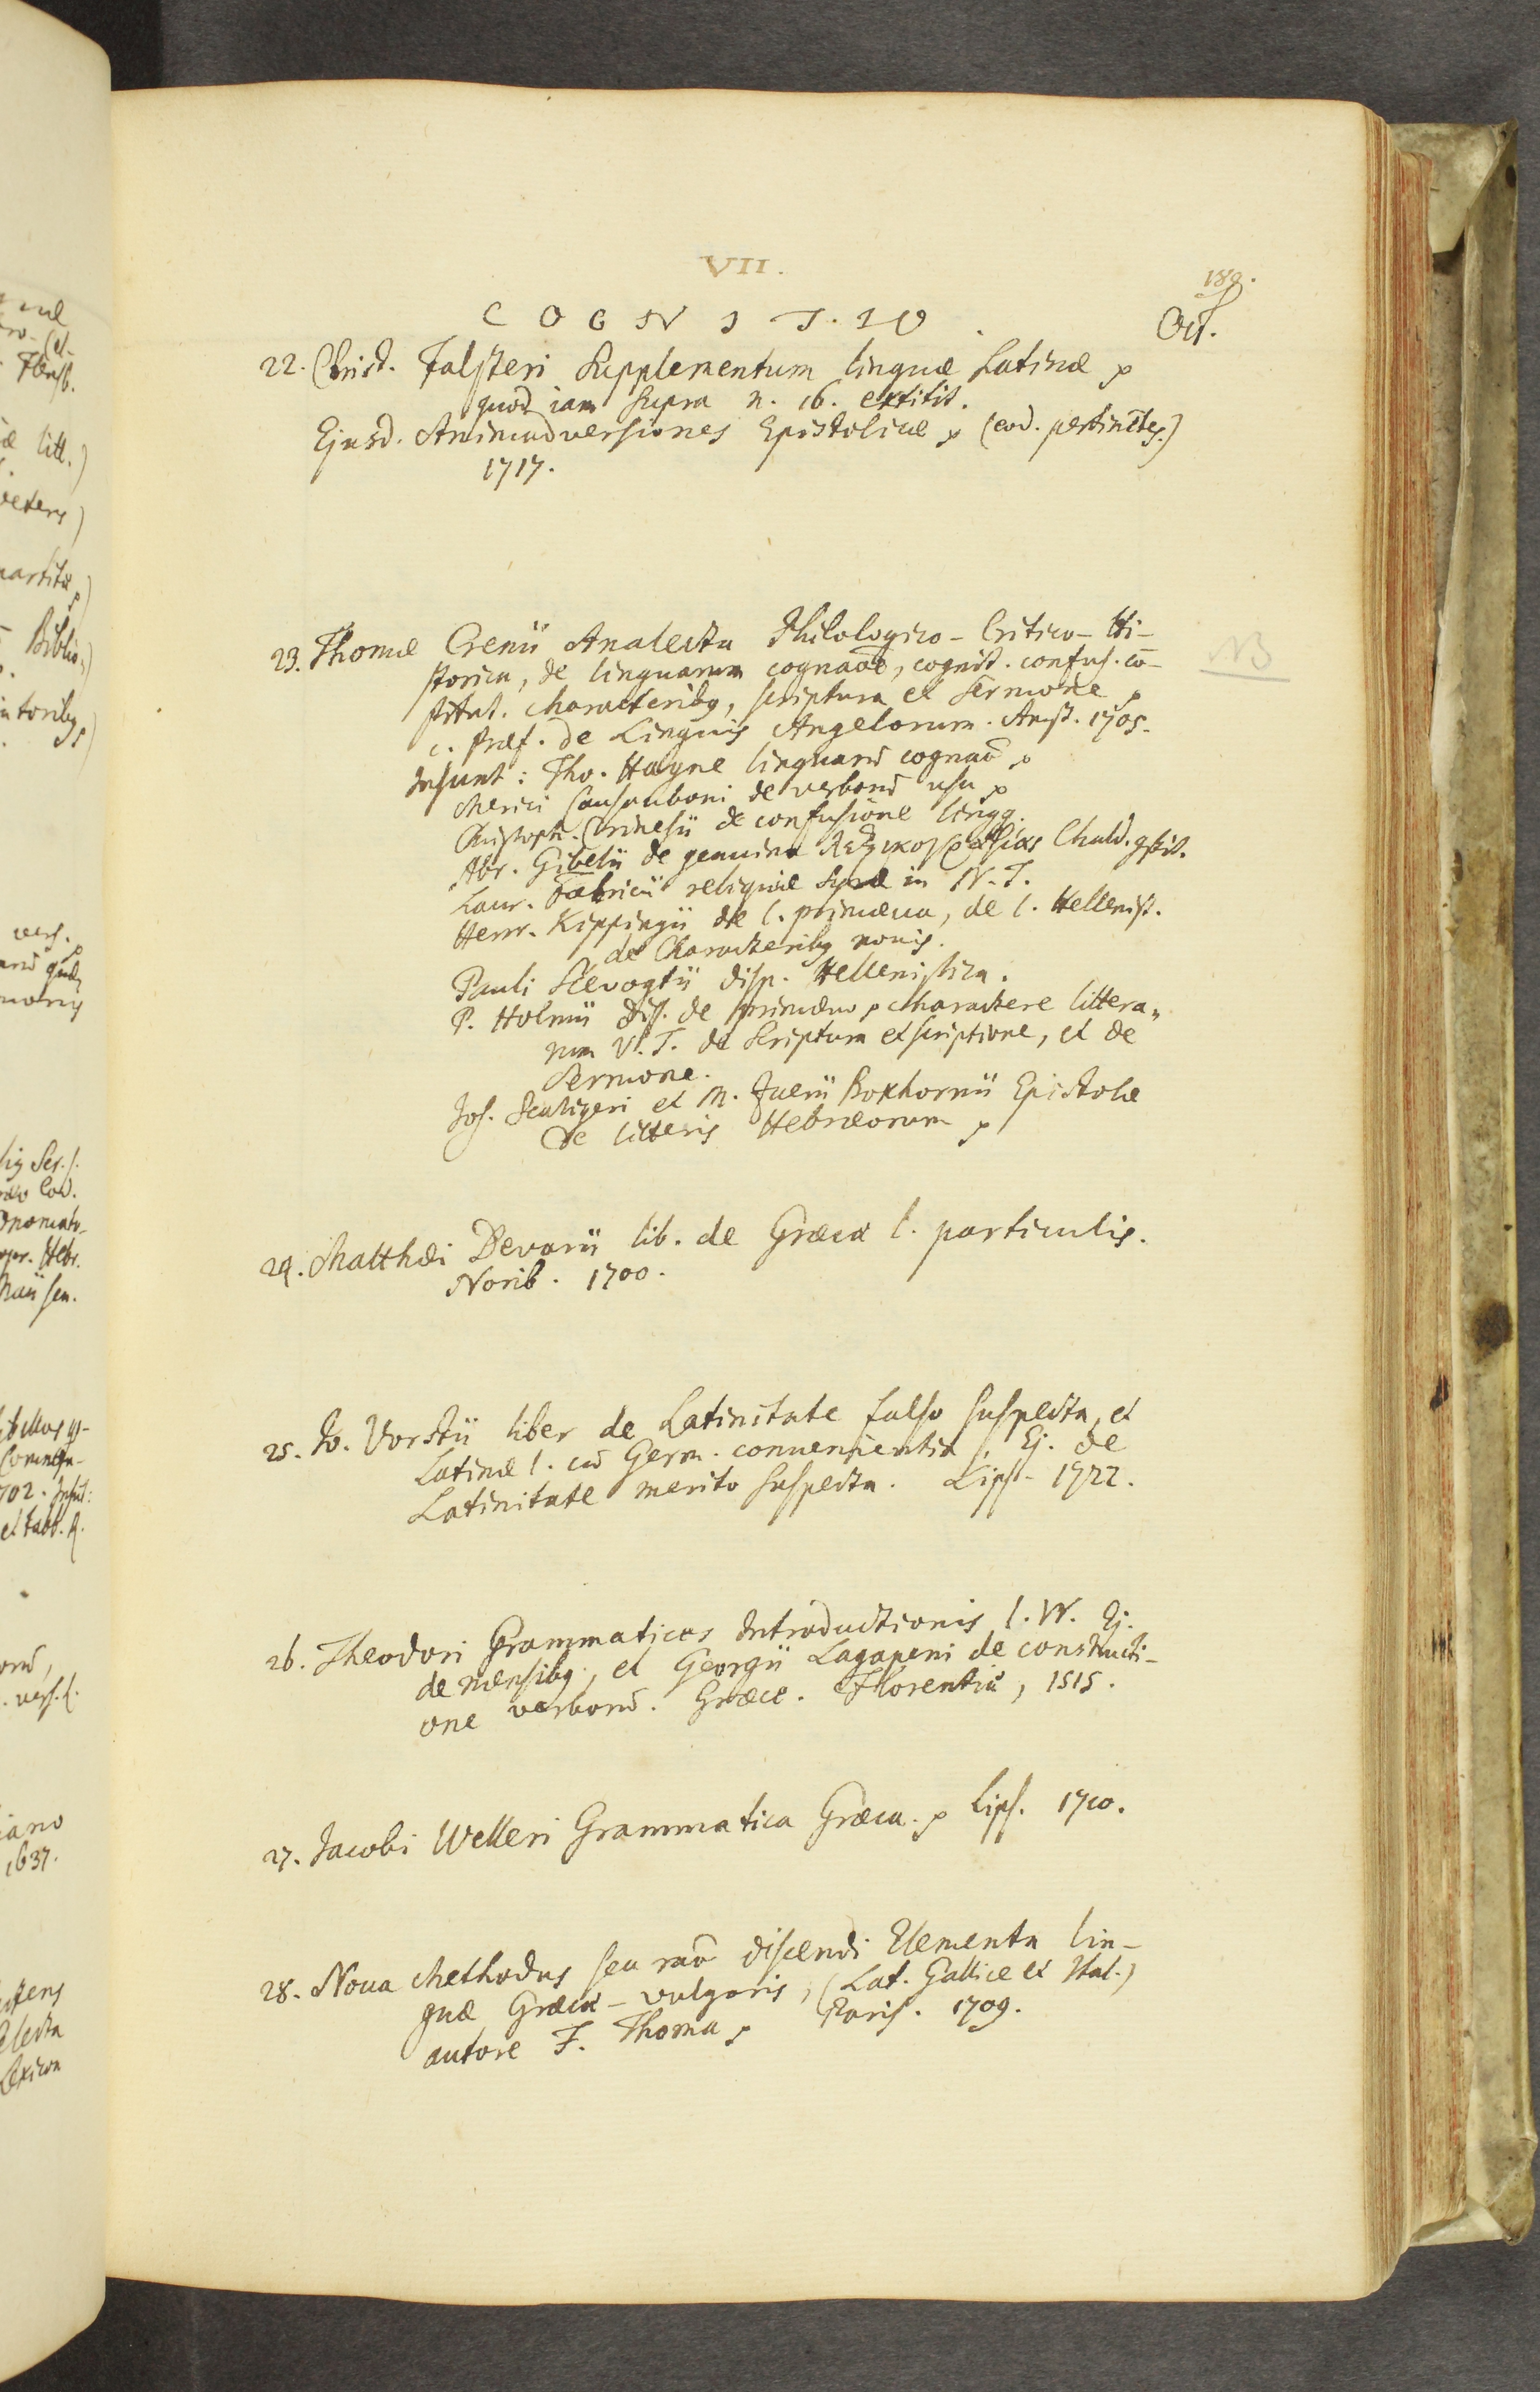 VII.
189.
COGNITIO.
Oct.
22. Christ. Falsteri Supplementum linguæ Latinæ
quod iam supra n. 16. extitit.
Ejusd. Animadversiones Epistolicæ (eod. pertinētes.)
1717.
23. Thomæ Crenii Analecta Philologico-Critico-Hi-
storica, de linguarum cognaōē, cognit. confus. cō-
stitut. characteribg, scriptura et Sermone
c. Præf. de Linguis Angelorum. Amst. 1705.
NB
Insunt: Tho. Hayne linguarū cognaō
Merici Casauboni de verborū usu
Christoph. Crinesii de confusione lingg.
Abr. Gibelii de genuina λεξικογραφίας Chald.
Laur. Fabricii reliquiæ Syræ in N.T.
Henr. Kippingii de l. primæva, de l. Hellenist.
de Characteribg novis.
Pauli Slevogtii disp. Hellenistica.
P. Holmii diss. de primævo charactere littera„
rum V.T. de Scriptura et scriptione, et de
Sermone.
Jos. Scaligeri et M. Zuerii Boxhornii Epistolæ
de litteris Hebræorum
24. Matthæi Devarii lib. de Græcæ l. particulis.
Norib. 1700.
25. Jo. Vorstii liber de Latinitate falso suspecta, et
Latinæ l. cū Germ. convenientia, Ej. de
Latinitate merito suspecta. Lips. 1722.
26. Theodori Grammatices Introductionis l. IV. Ej.
de mensibg, et Georgii Lagapeni de constructi-
one verborū. Græce. Florentiæ, 1515.
27. Jacobi Welleri Grammatica Græca. Lips. 1710.
28. Nova Methodus seu raō discendi Elementa lin-
guæ Græcæ-vulgaris, (Lat. Gallice et Ital.)
autore F. Thoma Paris. 1709.